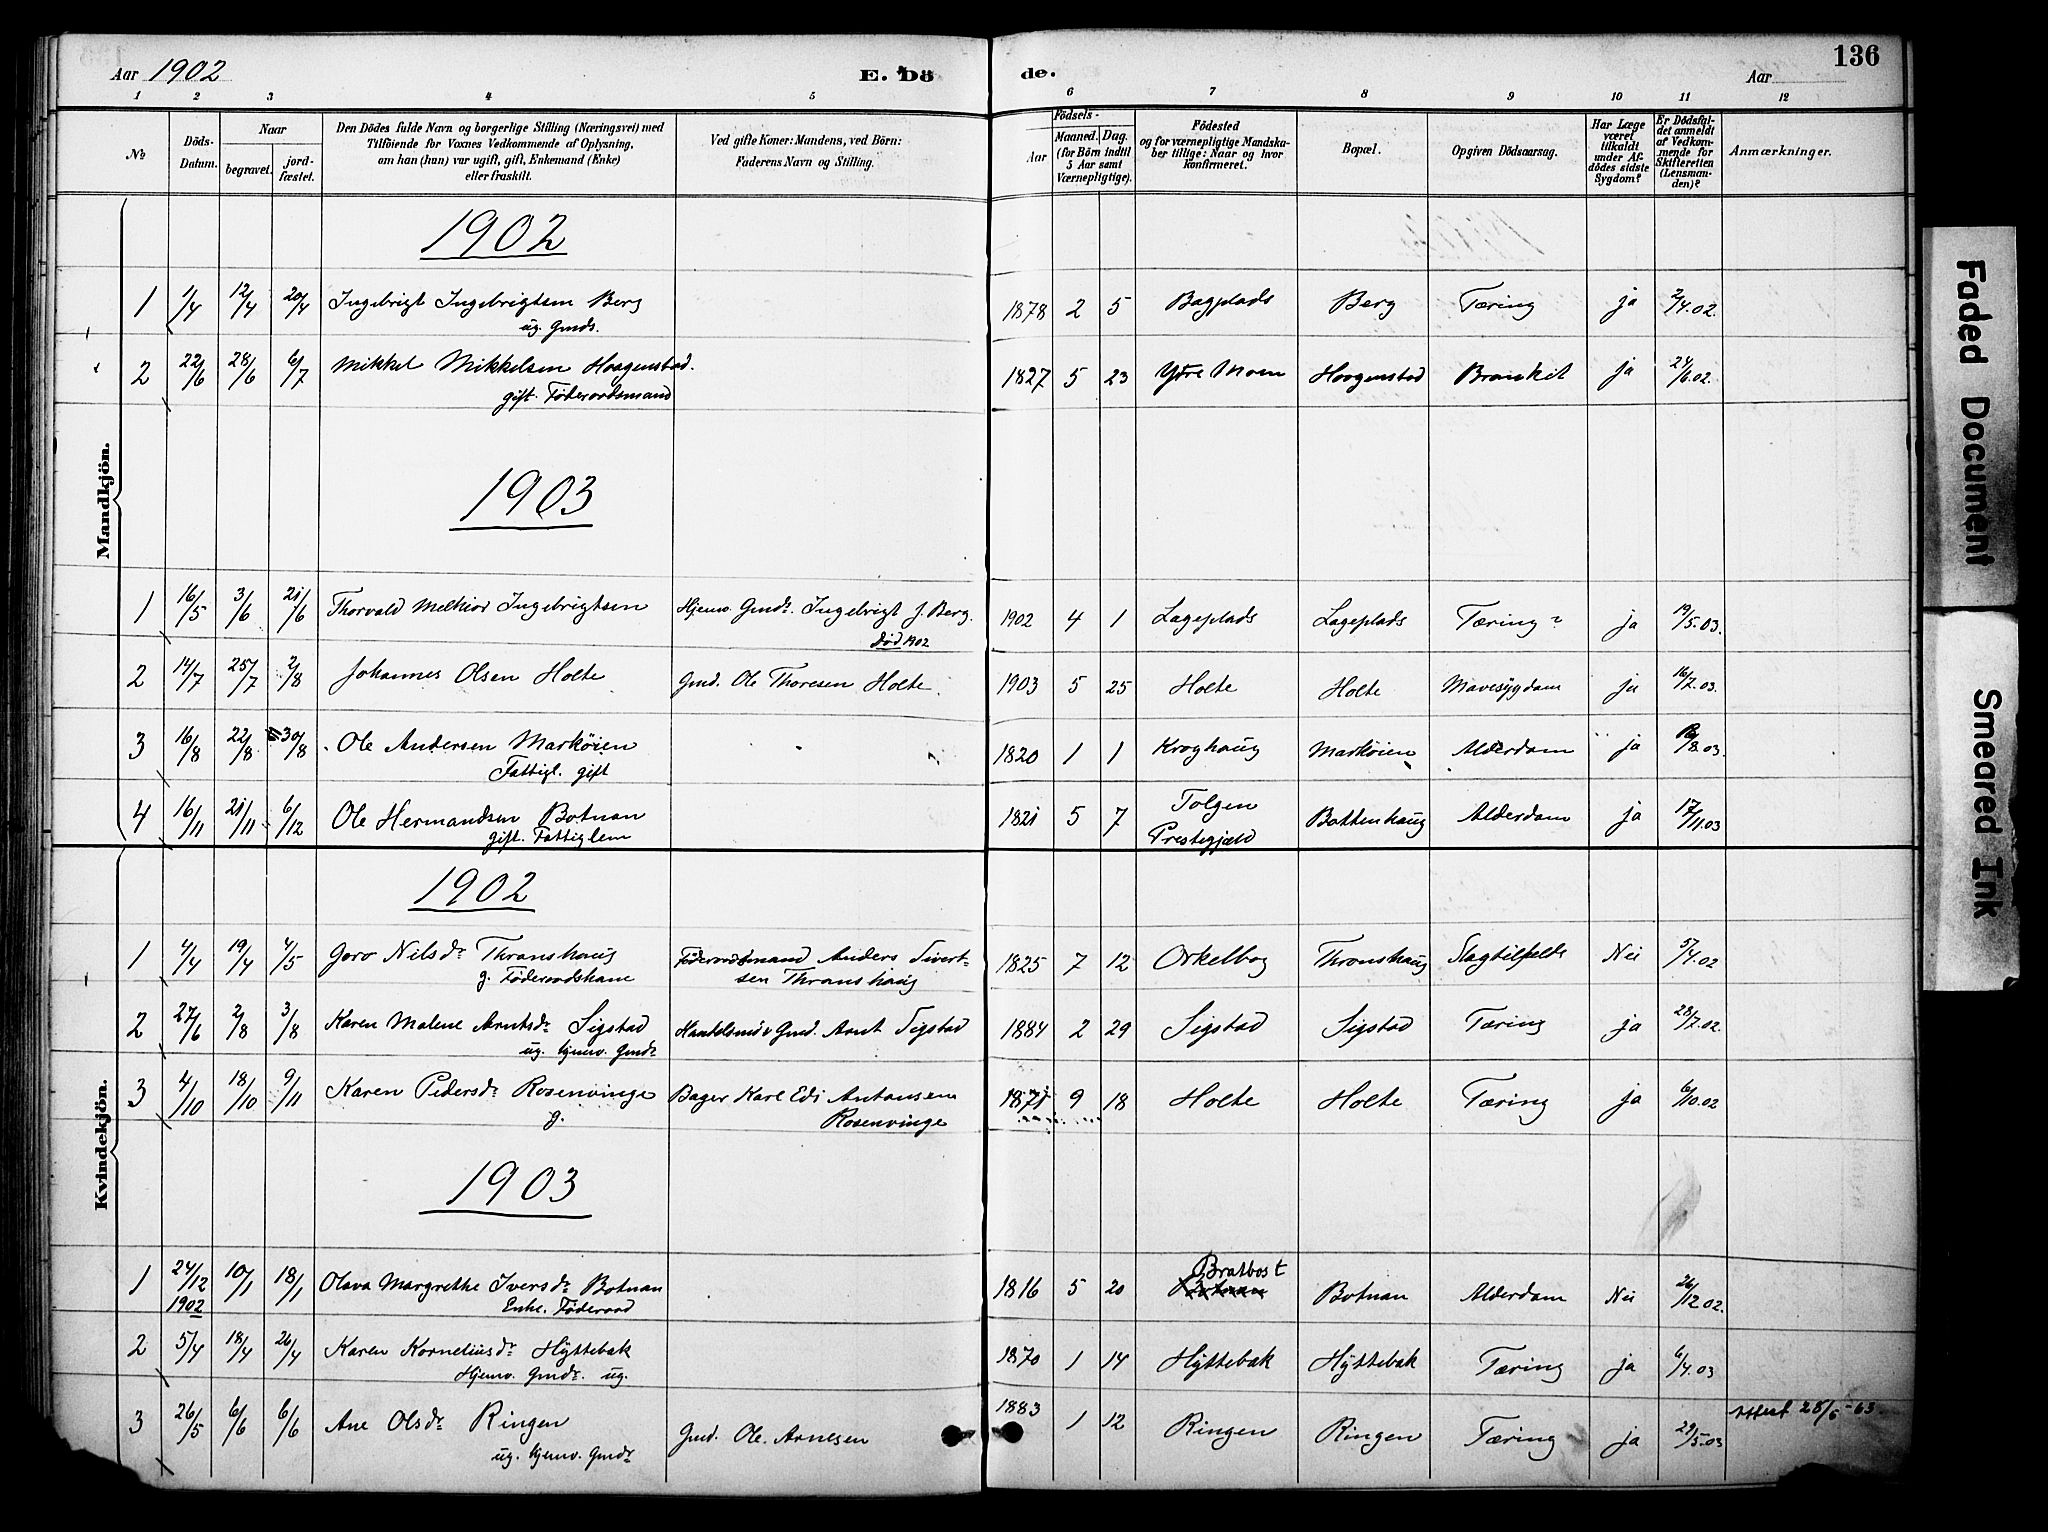 136
Aar 1902
E. Dö
de.
Aar
1 2 3 4 5 6 7 8 9 10 11 12
No
Döds-Datum.
Naar
begravet.
jord-fæstet.
Den Dödes fulde Navn og borgerlige Stilling (Næringsvei) med
Tilföiende for Voxnes Vedkommende af Oplysning,
om han (hun) var ugift, gift, Enkemand (Enke)
eller fraskilt.
Ved gifte Koner: Mandens, ved Börn:
Faderens Navn og Stilling.
Födsels-
Aar
Maaned. Dag.
(for Börn indtil
5 Aar samt
Værnepligtige).
Födested
og for værnepligtige Mandska-
ber tillige: Naar og hvor
konfirmeret.
Bopæl.
Opgiven Dödsaarsag.
Har Læge
været
tilkaldt
under Af-
dödes sidste
Sygdom?
Er Dödsfal-
det anmeldt
af Vedkom-
mende for
Skifteretten
(Lensman-
den)?
Anmærkninger.
Mandkjön.
1902
1 1/4 12/4 20/4 Ingebrigt Ingebrigtsen Berg 1878 2 5 Bagplads Berg Tæring ja 2/4.02.
ug. Gmds.
2 22/6 28/6 6/7 Mikkel Mikkelsen Haagenstad. 1827 5 23 Ydre Moen Haagenstad ja 24/6.02.
gift. Föderaadsmand
1903
1 16/5 3/6 21/6 Thorvald Melkior Ingebrigtsen Hjemv. Gmds. Ingebrigt J. Berg. 1902 4 1 Lageplads Lageplads Tæring? ja 19/5.03.
död 1902
2 14/7 25/7 2/8 Johannes Olsen Holte Gmd. Ole Thoresen Holte. 1903 5 25 Holte Holte Mavesygdom ja 16/7.03.
3 16/8 22/8 30/8 Ole Andersen Marköien 1820 1 1 Kroghaug Marköien Alderdom ja
Fattigl. gift
4 16/11 21/11 6/12 Ole Hermandsen Botnan 1821 5 7 Tolgen Bottenhaug Alderdom ja 17/11.03
gift. Fattiglem Prestegjæld
Kvindekjön.
1902
1 4/4 19/4 4/5 Goro Nilsdr Thronshaug Föderaadsmand Anders Sivert- 1825 7 12 Orkelbog Thronshaug Slagtilfælde Nei 5/4.02
g. Föderaadskone sen Thronshaug
2 27/6 2/8 3/8 Karen Malene Arntsdr Sigstad Handelsmd & Gmd. Arnt Sigstad 1884 2 29 Sigstad Sigstad Tæring ja 28/7.02.
ug. hjemv. Gmdr
3 4/10 18/10 9/11 Karen Pedersdr Rosenvinge Bager Karl Edv Antonsen 1871 9 18 Holte Holte Tæring ja 6/10.02
g. Rosenvinge
1903
1 24/12 1902 10/1 18/1 Olava Margrethe Iversdr Botnan 1816 5 20 Bratbost Botnan Botnan Alderdom Nei 26/12 02.
Enke. Föderaad
2 5/4 18/4 26/4 Karen Korneliusdr Hyttebak 1870 1 14 Hyttebak Hyttebak Tæring ja 6/4.03
Hjemv. Gmdr. ug.
3 26/5 6/6 6/6 Ane Olsdr Ringen Gmd. Ole Arnesen 1883 1 12 Ringen Ringen Tæring ja 29/5.03 Attest 28/5-63
ug. hjemv. Gmdr
Faded Document
Smeared Ink